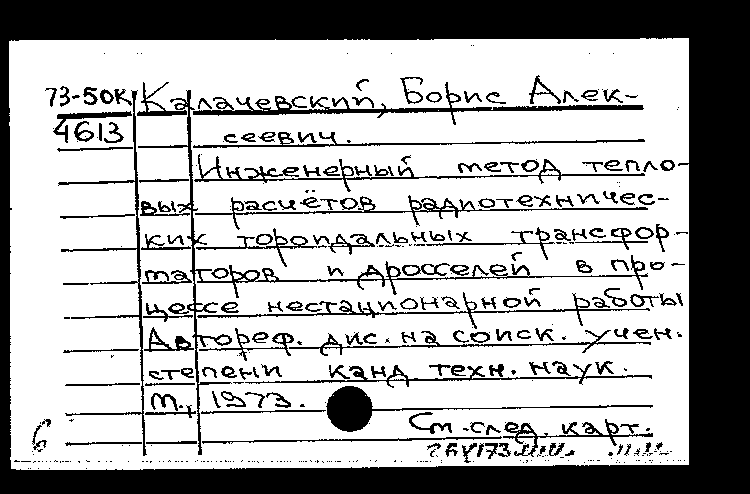 73-50К Калачевский, Борис Алек-
4613 сеевич.
Инженерный метод тепло-
вых расчётов радиотехничес-
ких тороидальных трансфор-
маторов и дросселей в про-
цессе нестационарной работы
Автореф. дис. на соиск. учен.
степени канд техн. наук.
М., 1973.
См. след. карт.
6